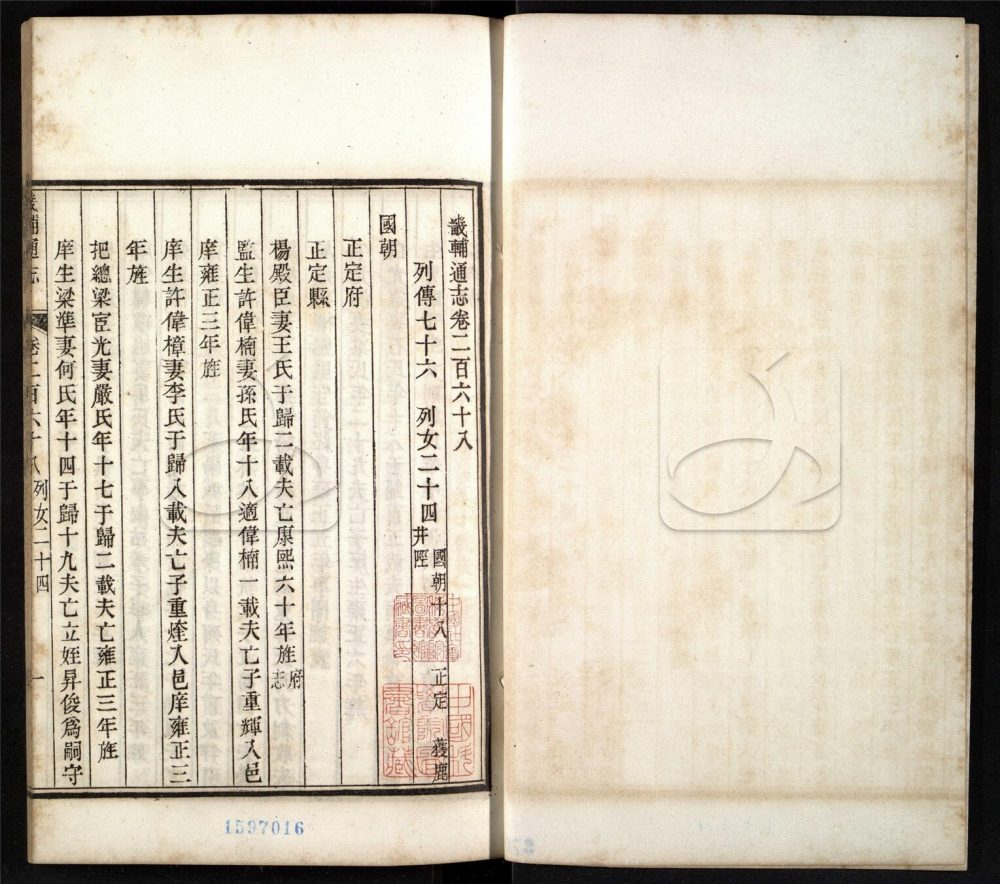 畿輔通志卷二百六十八
列傳七十六　列女二十四　國朝十八　正定　獲鹿
井陘
國朝
正定府
正定縣
楊殿臣妻王氏于歸二載夫亡康熙六十年旌府志
監生許偉楠妻孫氏年十八適偉楠一載夫亡子重輝入邑
庠雍正三年旌
庠生許偉樟妻李氏于歸八載夫亡子重煃入邑庠雍正三
年旌
把總梁宧光妻嚴氏年十七于歸二載夫亡雍正三年旌
庠生梁準妻何氏年十四于歸十九夫亡立姪昇俊爲嗣守
畿輔通志　卷二百六十八　列女二十四　一
1597016